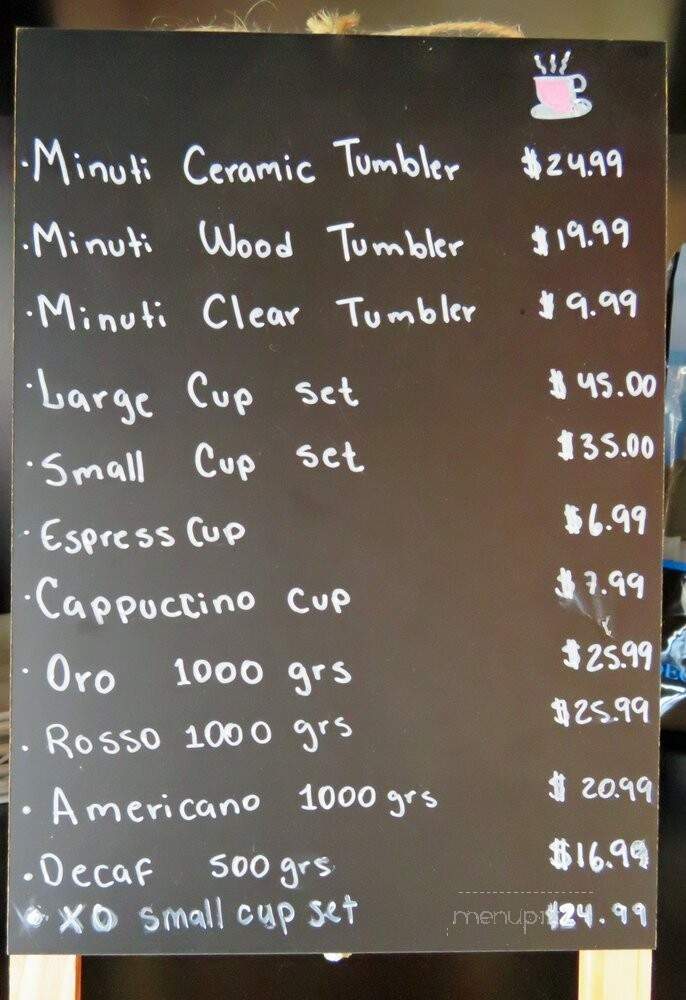 · Minuti Ceramic Tumbler $24.99
· Minuti Wood Tumbler $19.99
· Minuti Clear Tumbler $9.99
· Large Cup set $45.00
· Small Cup set $35.00
· Espress Cup $6.99
· Cappuccino cup $7.99
· Oro 1000 grs $25.99
· Rosso 1000 grs $25.99
· Americano 1000 grs $20.99
· Decaf 500 grs $16.99
· XO small cup set $24.99